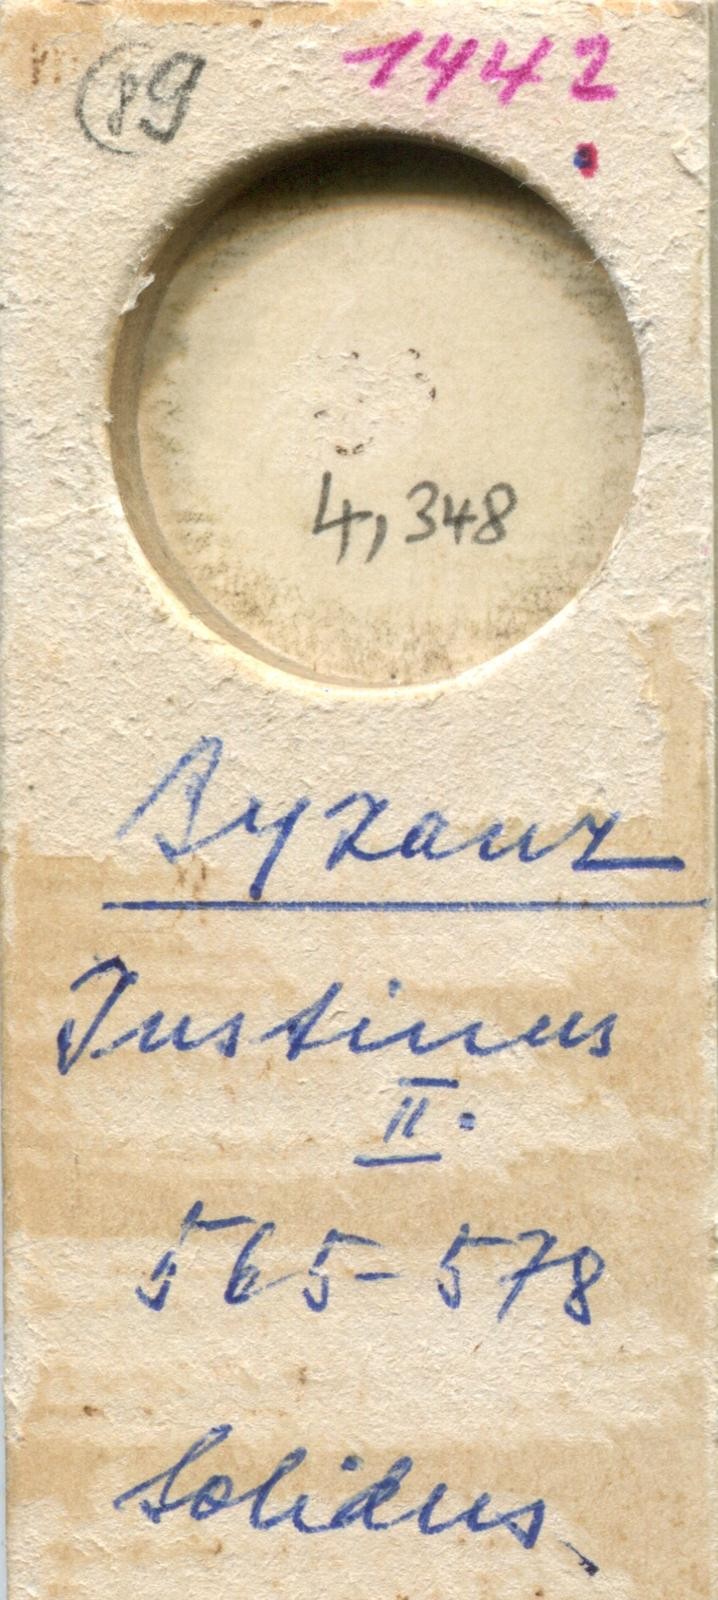 89 1442
4,348
Byzanz
Justinus
II.
565-578
Solidus